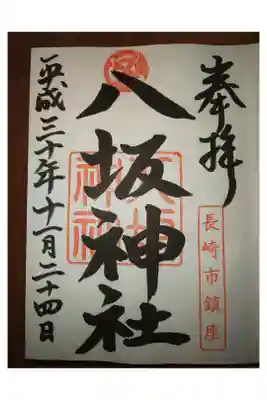 奉拝
長崎市鎮座
八坂神社
平成三十年十一月二十四日